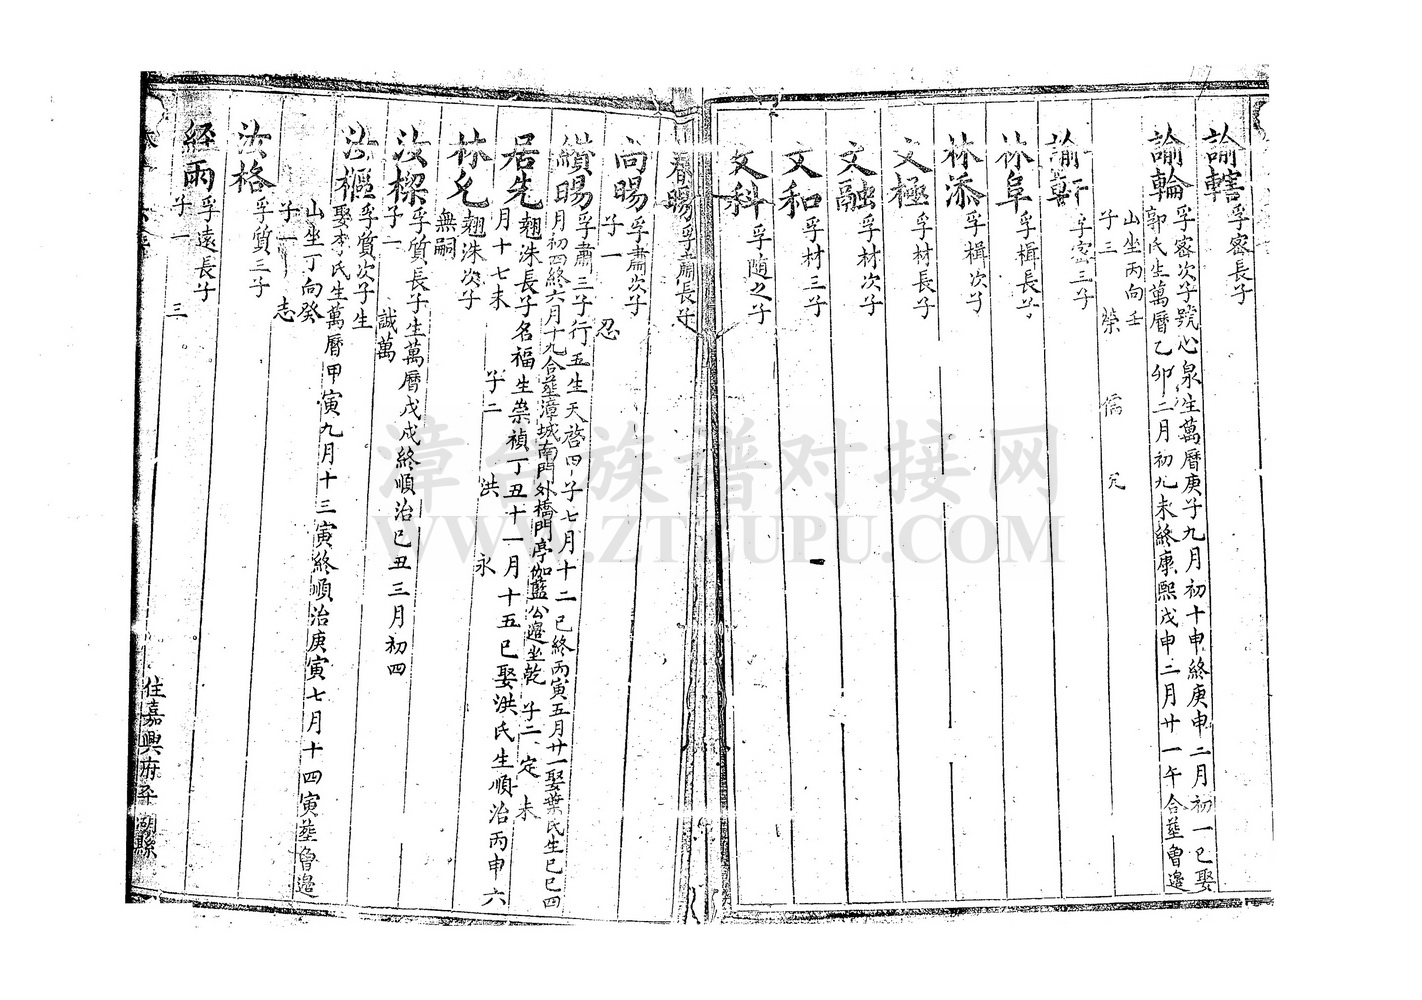 諭轄孚密長子
諭輪孚密次子號心泉生萬曆庚子九月初十申終庚申二月初一巳娶
郭氏生萬曆乙卯二月初九未終康熙戊申二月廿一午合塟魯邉
山坐丙向壬
子三 榮 儒 允
孚密三子
林阜孚楫長子
林添孚楫次子
文極孚材長子
文融孚材次子
文和孚材三子
文科孚随之子
春暘孚肅長子
向暘孚肅次子
子一 忍
纘暘孚肅三子行五生天啓四子七月十二巳終丙寅五月廿一娶葉氏生己巳四
月初四終六月十九合塟漳城南門外橋門亭伽藍公邉坐乾 子二 定 未
居先翹洙長子名福生崇禎丁丑十一月十五巳娶洪氏生順治丙申六
月十七未 子二 洪 永
林允翹洙次子
無嗣
汝樑孚質長子生萬曆戊戌終順治己丑三月初四
子二 誠萬
汝樞孚質次子生
娶李氏生萬曆甲寅九月十三寅終順治庚寅七月十四寅塟魯邉
山坐丁向癸
子一 志
汝格孚質三子
經兩孚遠長子
子一 三
住嘉興府平湖縣
漳台族谱对接网
WWW.ZTZUPU.COM